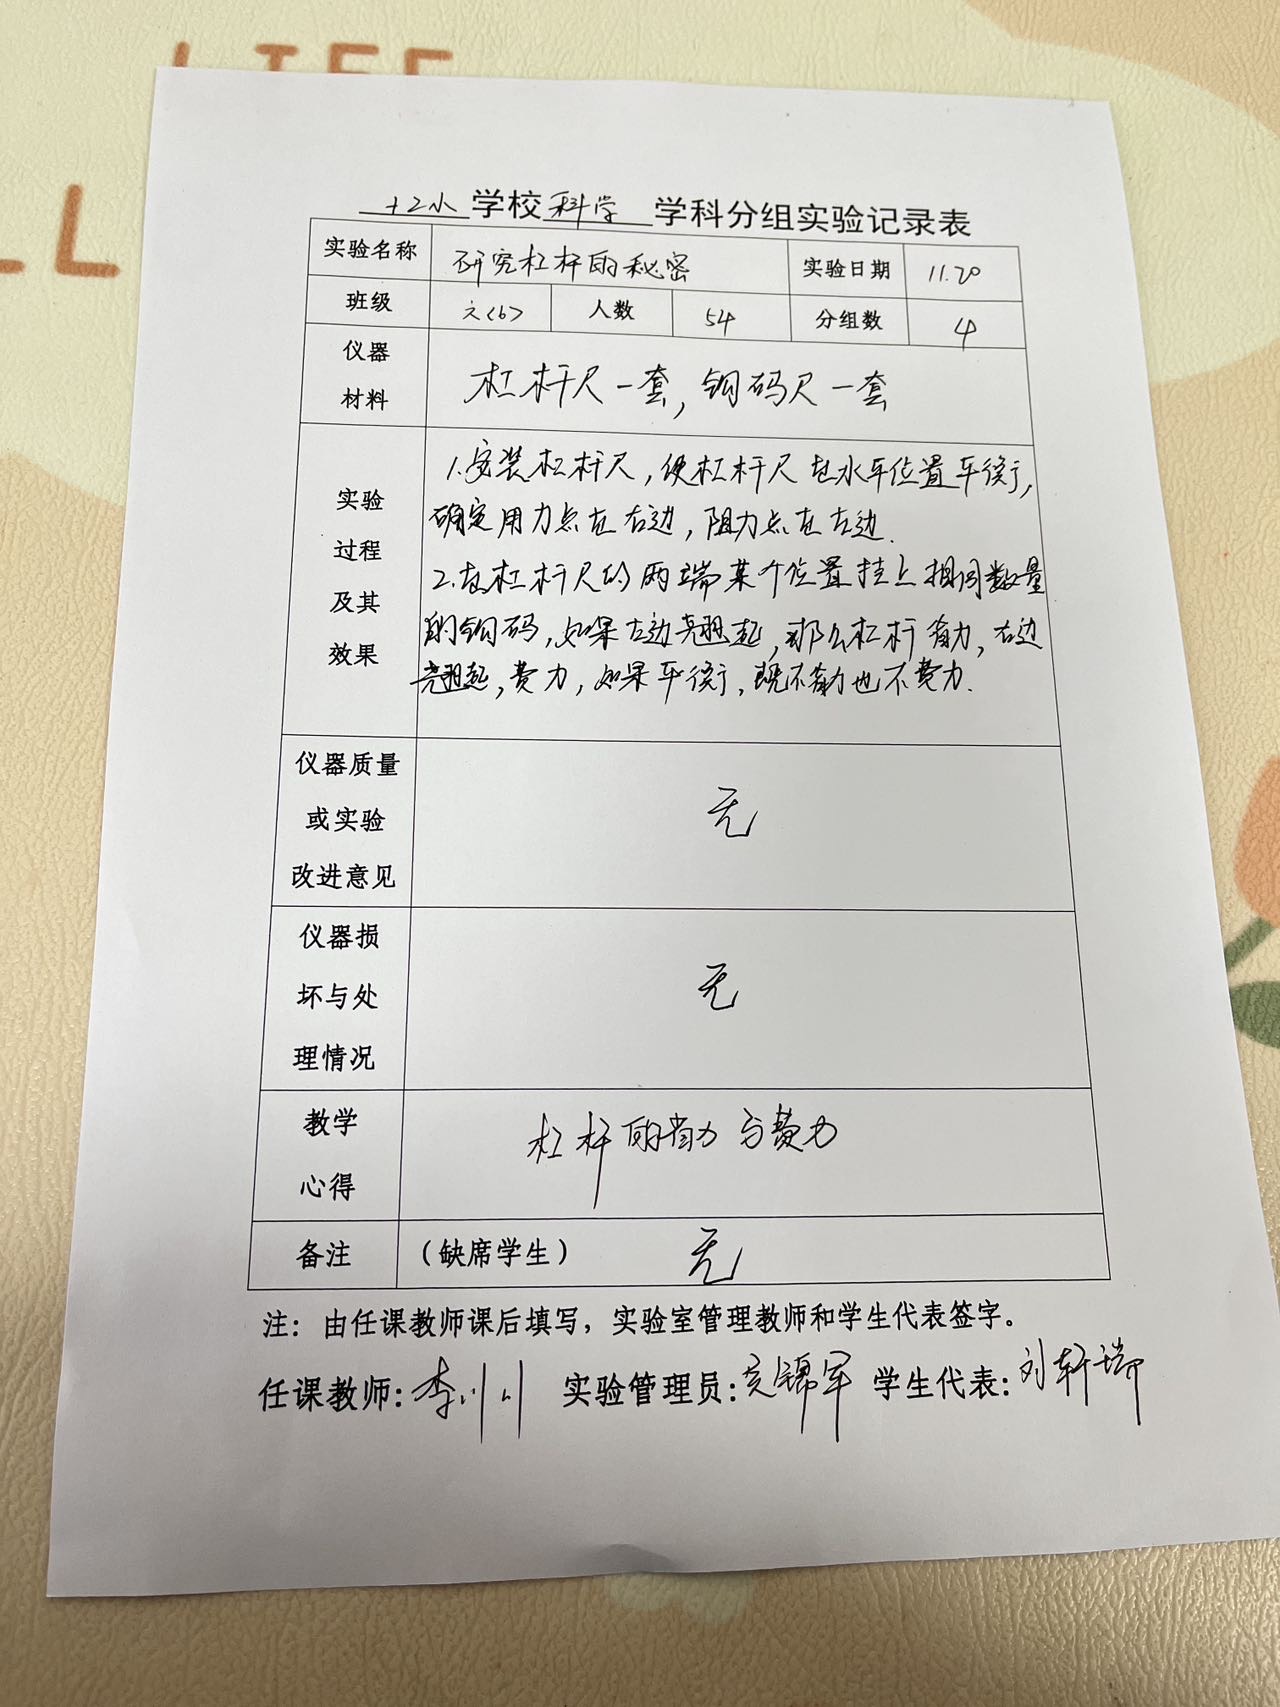 LIFE
LL
十二小 学校 科学 学科分组实验记录表
实验名称 研究杠杆的秘密 实验日期 11.20
班级 六<6> 人数 54 分组数 4
仪器材料 杠杆尺一套,钩码尺一套
实验过程及其效果
1.安装杠杆尺,使杠杆尺在水平位置平衡,
确定用力点在右边,阻力点在左边.
2.在杠杆尺的两端某个位置挂上相同数量
的钩码,如果左边翘起,那么杠杆省力,右边
翘起,费力,如果平衡,既不省力也不费力.
仪器质量或实验改进意见 无
仪器损坏与处理情况 无
教学心得 杠杆的省力与费力
备注 (缺席学生) 无
注:由任课教师课后填写,实验室管理教师和学生代表签字。
任课教师:李川川 实验管理员: 锦军 学生代表:刘轩瑞